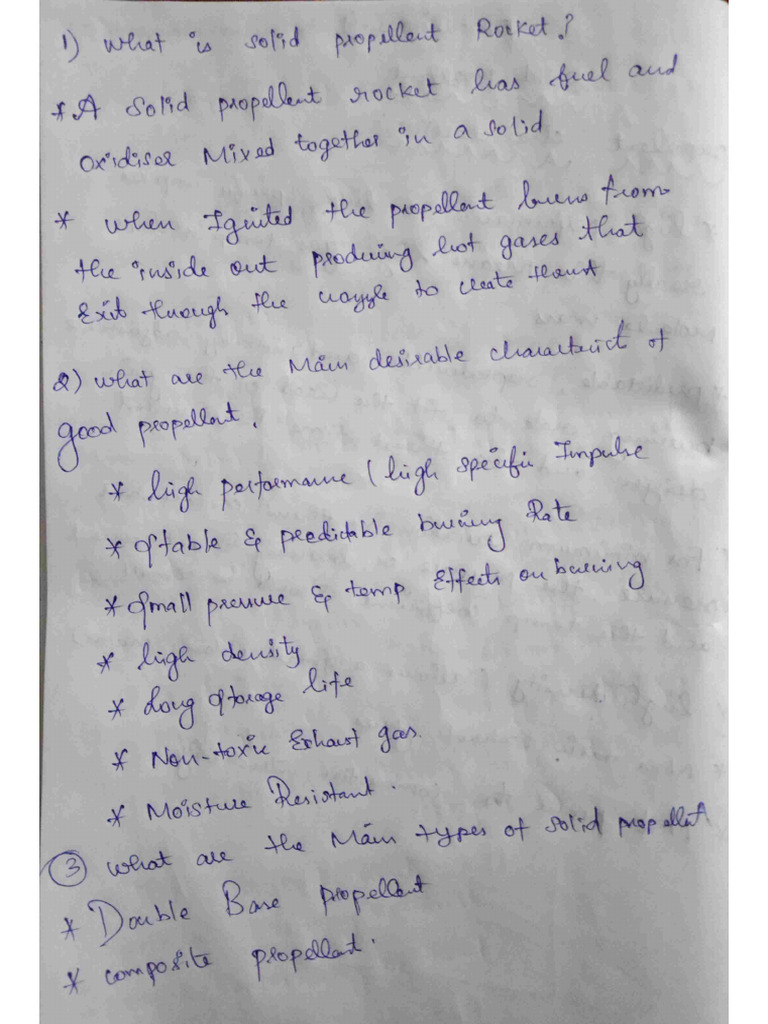 1) What is solid propellent Rocket?
* A Solid propellent rocket has fuel and
oxidiser Mixed together in a solid.
* when Ignited the propellent burns from
the inside out producing hot gases that
Exit through the nozzle to create thrust
2) what are the Main desirable characterist of
good propellent.
* high performance (high specific Impulse
* Stable & predictable burning Rate
* Small pressure & temp Effects on burning
* high density
* Long Storage life
* Non-toxic Exhaust gas.
* Moisture Resistant.
3 what are the Main types of solid propellet
* Double Base propellent
* composite propellant.